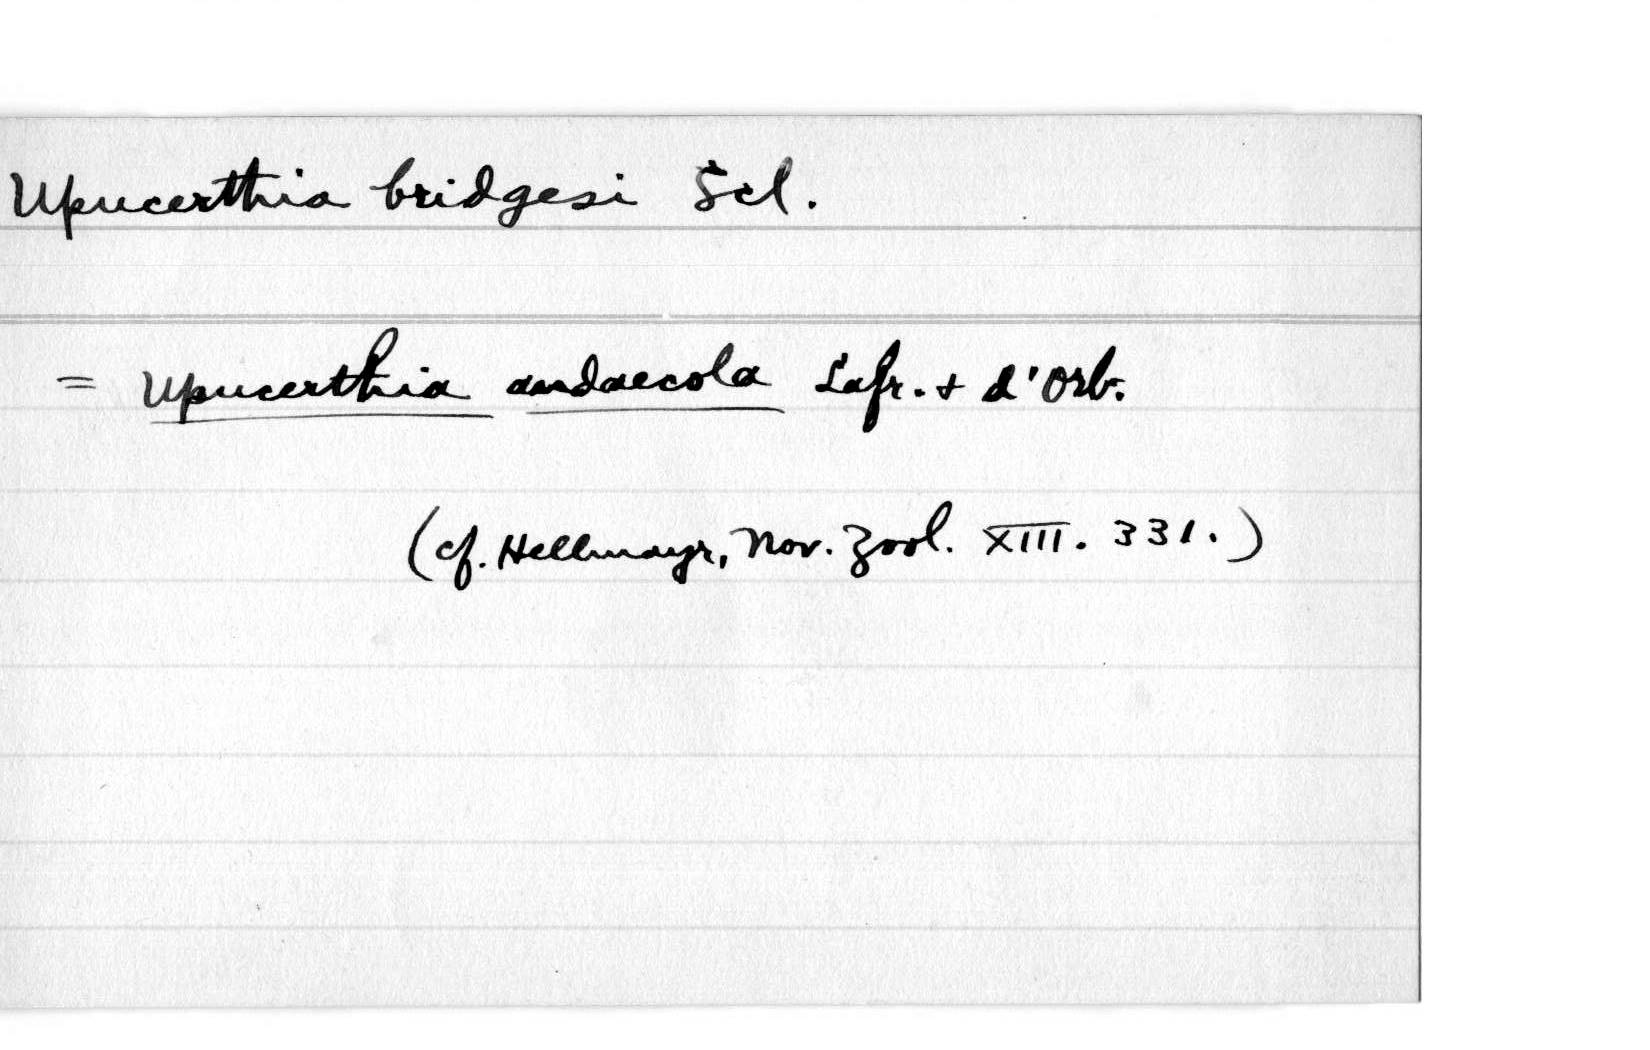 Upucerthia bridgesi Scl.
= Upucerthia andaecola Lafr. + d'Orb.
(cf. Hellmayr, Nov. Zool. XIII. 331.)